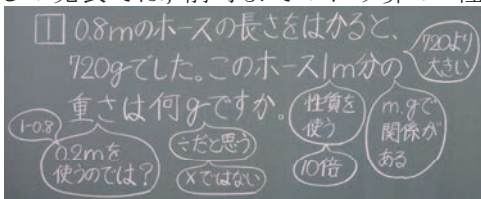 1 0.8mのホースの長さをはかると、
720gでした。このホース1m分の
重さは何gですか。
720より
大きい
1-0.8
0.2mを
使うのでは？
÷だと思う
×ではない
性質を
使う
10倍
m.gで
関係が
ある